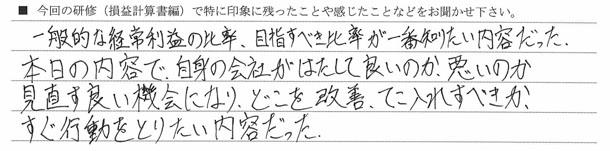 ■ 今回の研修（損益計算書編）で特に印象に残ったことや感じたことなどをお聞かせ下さい。
一般的な経常利益の比率、目指すべき比率が一番知りたい内容だった。
本日の内容で、自身の会社がはたして良いのか、悪いのか
見直す良い機会になり、どこを改善、てこ入れすべきか、
すぐ行動をとりたい内容だった。